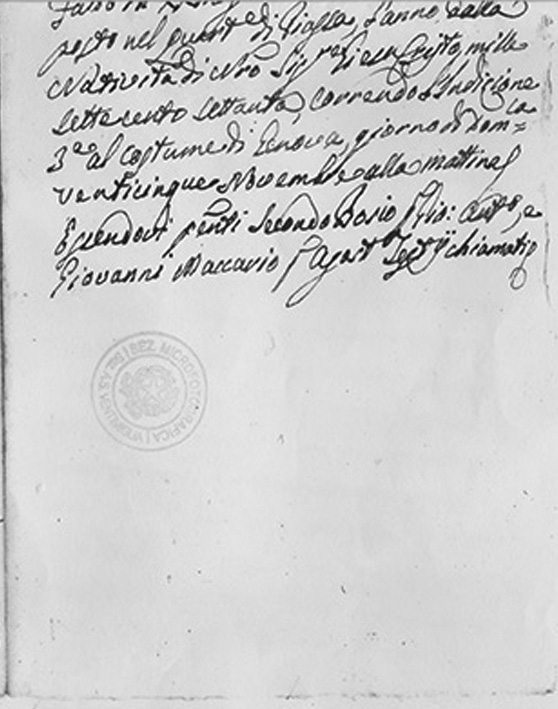 posto nel quart.e di Piassa, l'anno dalla
Natività di Nro Sig.re Giesu Cristo mille
settecento settanta, correndo l'Indizione
3.a al costume di Genova, giorno di Dom.ca
venticinque Novembre alla mattina
Essendovi p.enti Secondo Bosio
Giovanni Maccario q. Agost.o Test.ij chiamati
SEZ. MICROFOTOGRAFICA